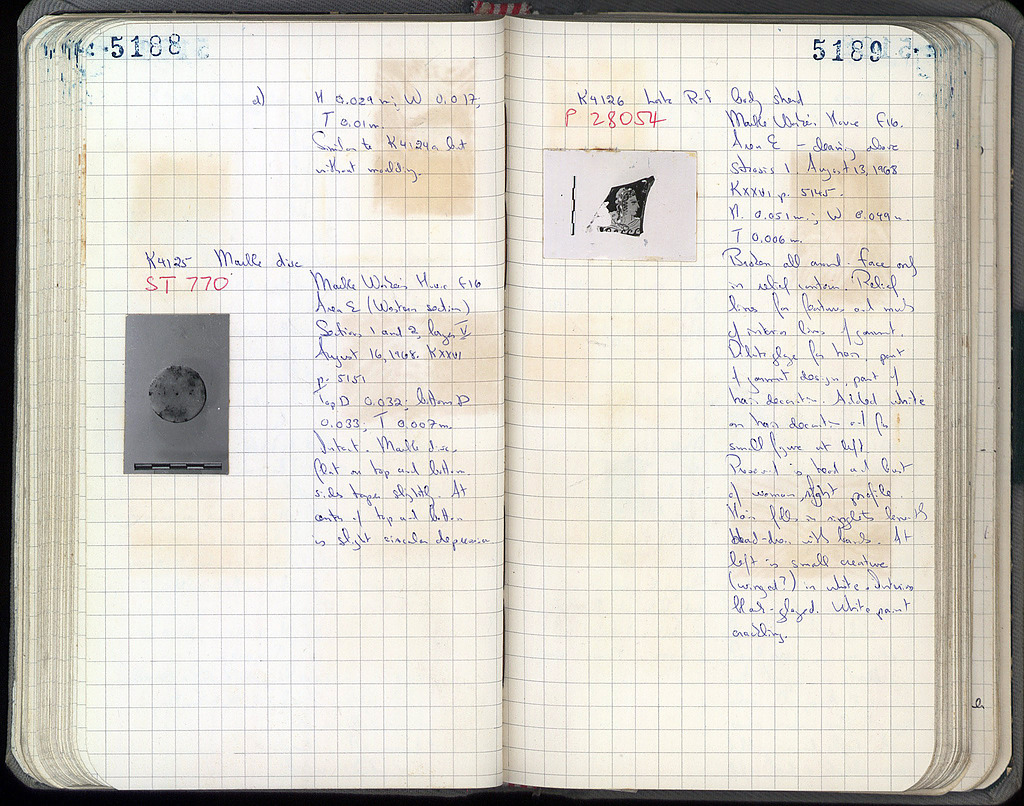 5188
d) H 0.029 m; W 0.017;
T 0.01 m.
Similar to K4124a but
without moulding.
K4125 Marble disc
ST 770
Marble Worker's House F16
Area E (Western section)
Sections 1 and 2, layer V
August 16, 1968. KXXVI
p. 5151
Top D 0.032; bottom D
0.033; T 0.007 m.
Intact. Marble disc,
flat on top and bottom,
sides taper slightly. At
center of top and bottom
is slight circular depression.
5189
K4126 Late R-f body sherd
P 28054
Marble Worker's House F16.
Area E - cleaning above
strosis 1. August 13, 1968
KXXVI p. 5145.
H. 0.051 m.; W 0.049 m.
T 0.006 m.
Broken all around. Face only
in relief contour. Relief
lines for features and
of interior lines of garment.
Dilute glaze for hair, part
of garment design, part of
hair decoration. Added white
on hair decoration and for
small figure at left.
Preserved is head and bust
of woman, right profile.
Hair falls in ringlets beneath
head-dress with bands. At
left is small creature
(winged?) in white. Interior
black-glazed. White paint
crackling.